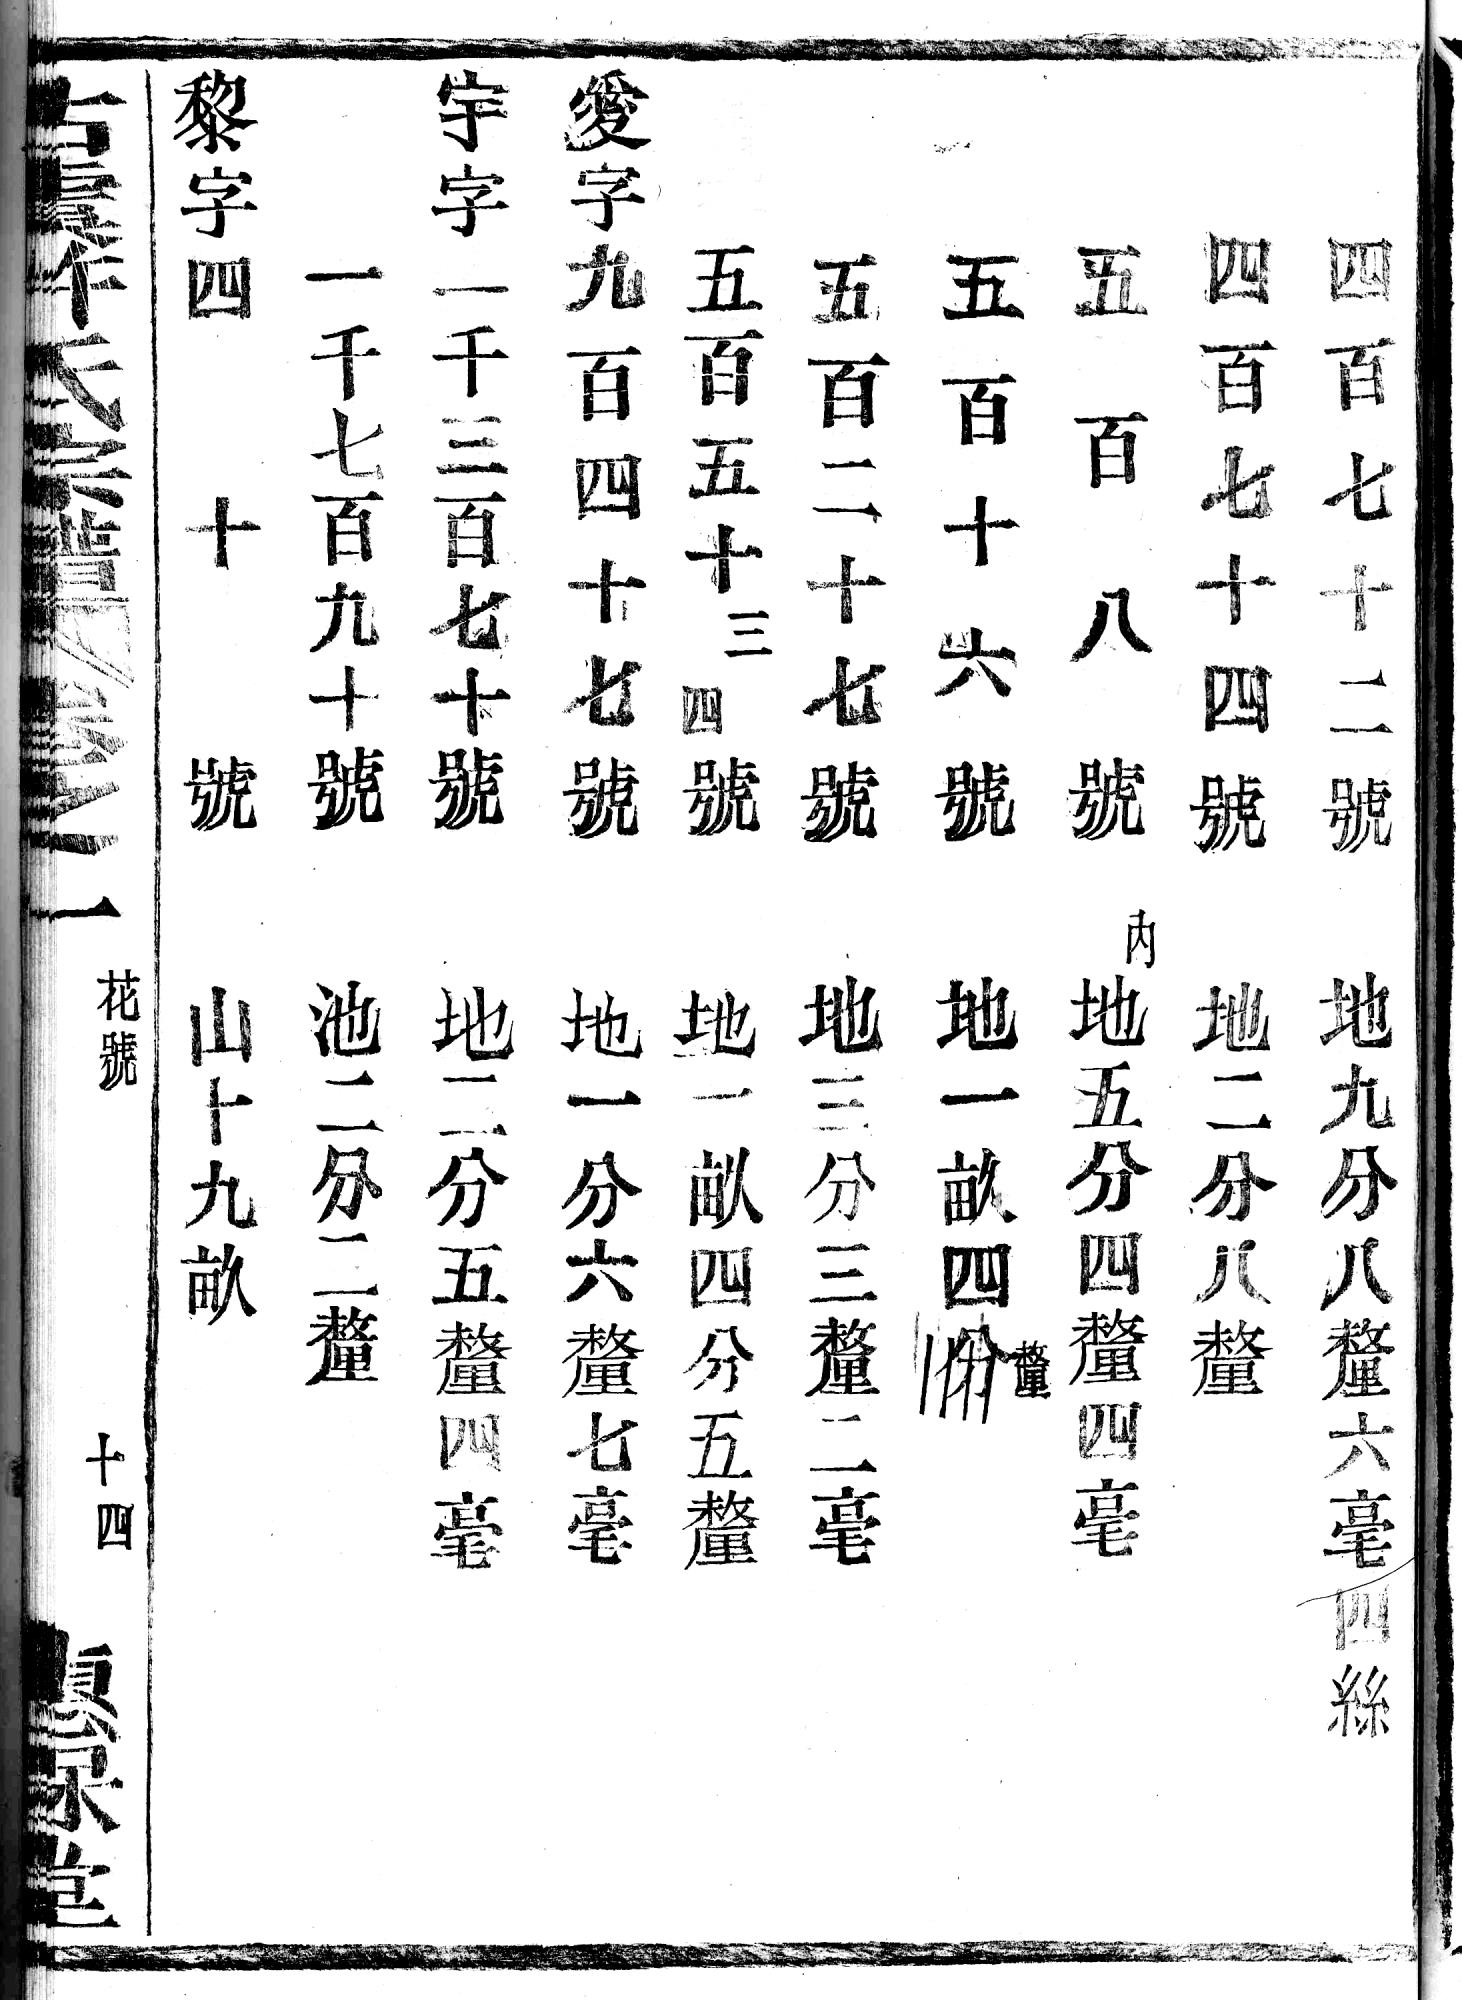 四百七十二號　地九分八釐六毫四絲
四百七十四號　地二分八釐
五百八號　內地五分四釐四毫
五百十六號　地一畝四分釐
五百二十七號　地三分三釐二毫
五百五十三四號　地一畝四分五釐
愛字九百四十七號　地一分六釐七毫
宇字一千三百七十號　地二分五釐四毫
一千七百九十號　池二分二釐
黎字四十號　山十九畝
氏宗譜
花號
十四
堂